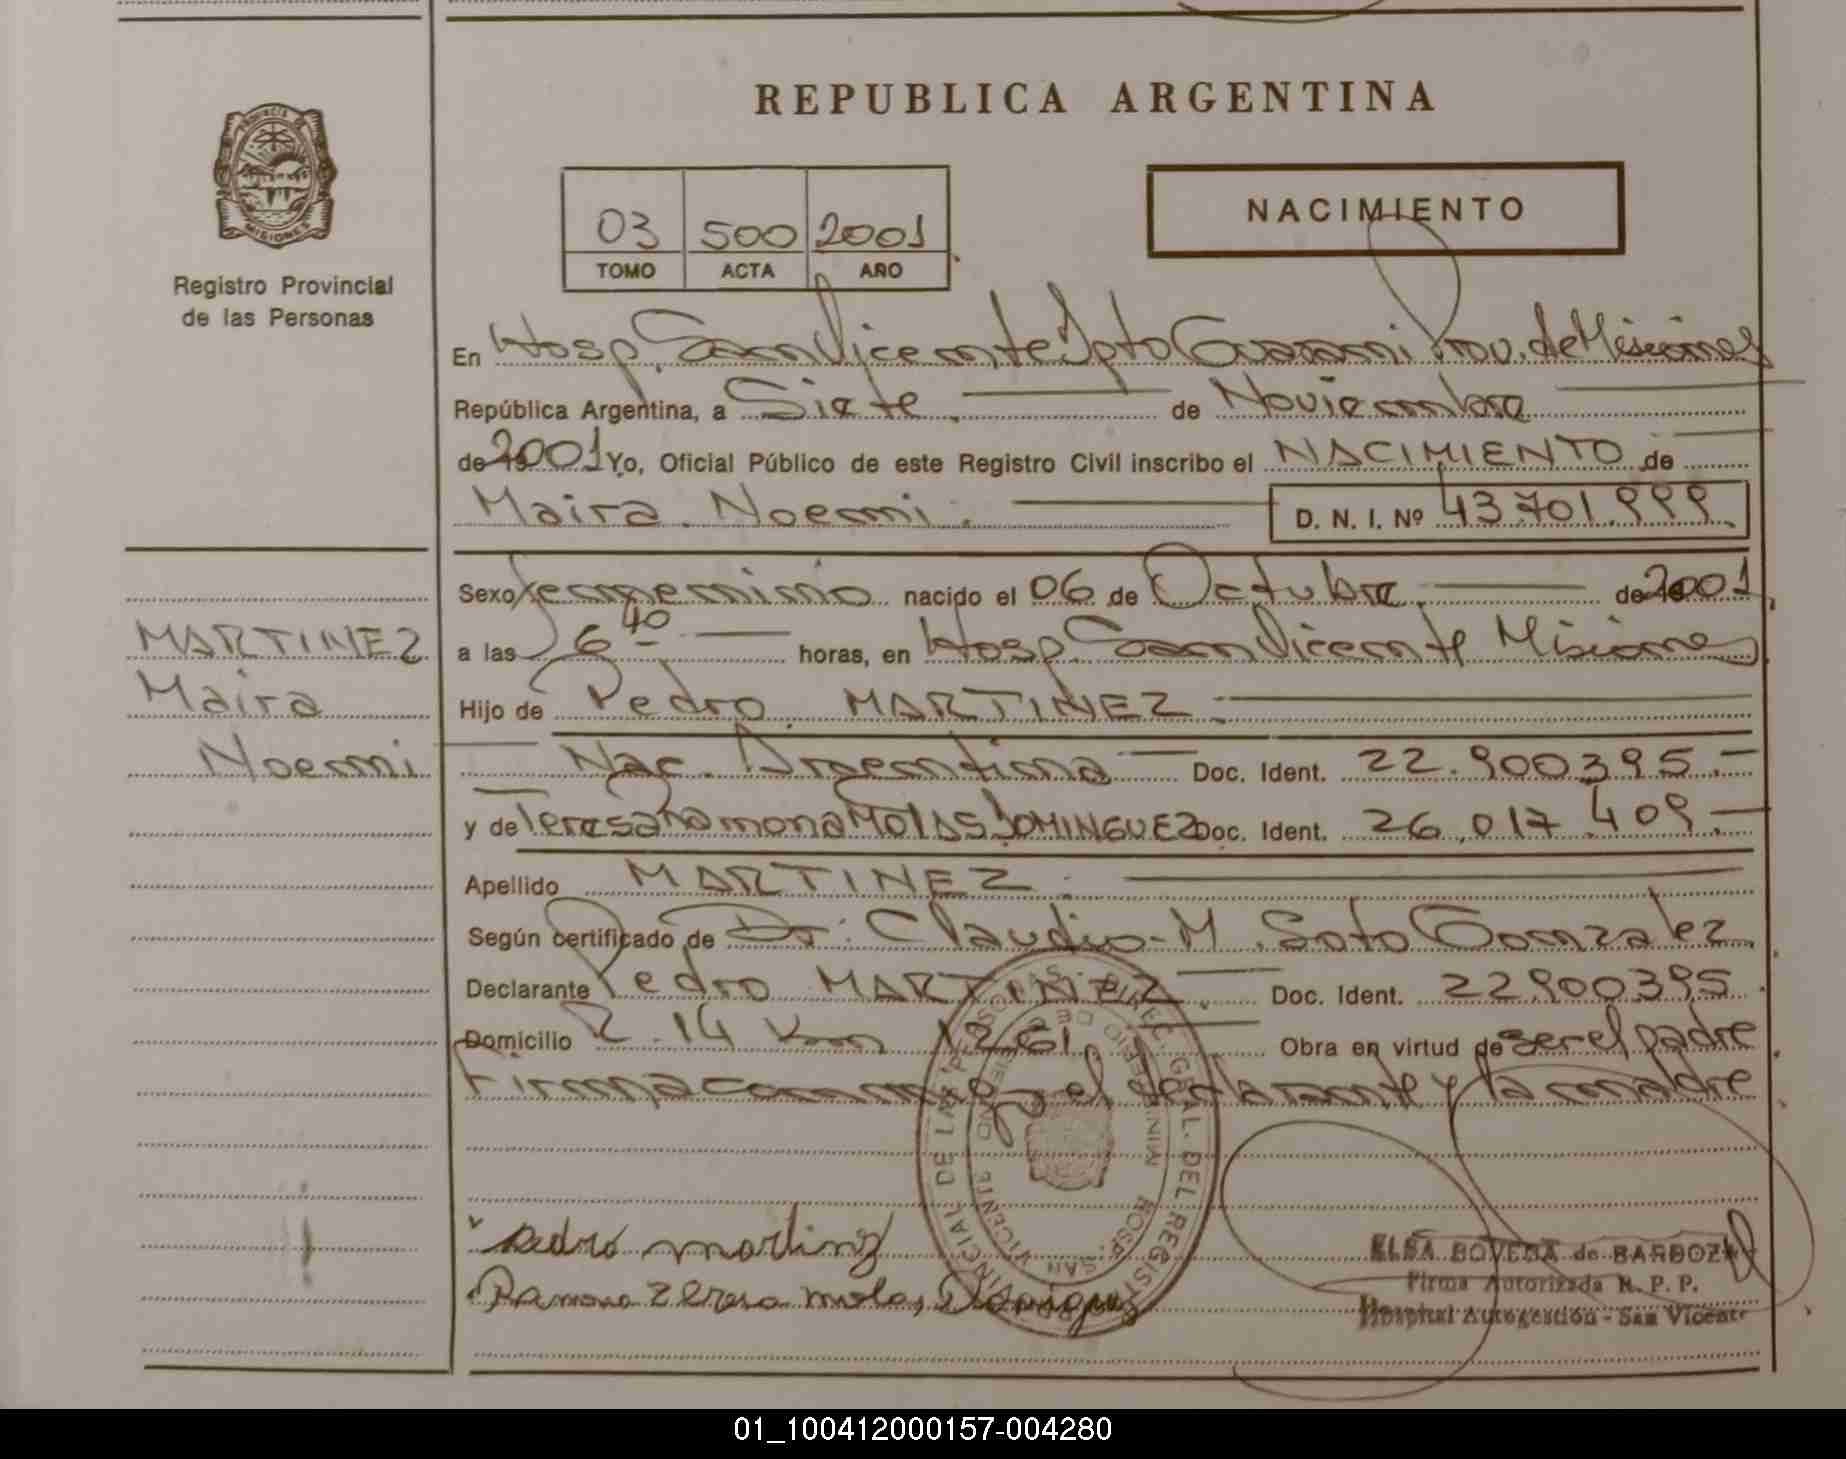 REPUBLICA ARGENTINA
PROVINCIA DE
MISIONES
Registro Provincial
de las Personas
03 500 2001
TOMO ACTA AÑO
NACIMIENTO
En Hosp. San Vicente Dpto Guarani Prov. de Misiones
República Argentina, a Siete. de Noviembre
de 2001 Yo, Oficial Público de este Registro Civil inscribo el NACIMIENTO de
Maira Noemi. D. N. I. Nº 43.701.999.
Sexo femenino nacido el 06 de Octubre de 2001
a las 6 40 horas, en Hosp. San Vicente Misiones
Hijo de Pedro MARTINEZ.
Nac. Argentina Doc. Ident. 22.900395.
y de Teresa Ramona MOLAS DOMINGUEZ Doc. Ident. 26.017.409.
Apellido MARTINEZ.
Según certificado de Dr. Claudio M. Soto Gonzalez
Declarante Pedro MARTINEZ. Doc. Ident. 22900395
Domicilio R. 14 Km 1261. Obra en virtud de ser el padre
Firma conmigo el declarante y la madre
MARTINEZ
Maira
Noemi
Pedro martinz
Ramona Teresa molas
PROVINCIAL DE LAS PERSONAS - DIREC. GRAL. DEL REGISTRO
HOSP. SAN VICENTE
ELSA BOVEDA de BARBOZA
Firma Autorizada R. P. P.
Hospital Autogestión - San Vicente
01_100412000157-004280